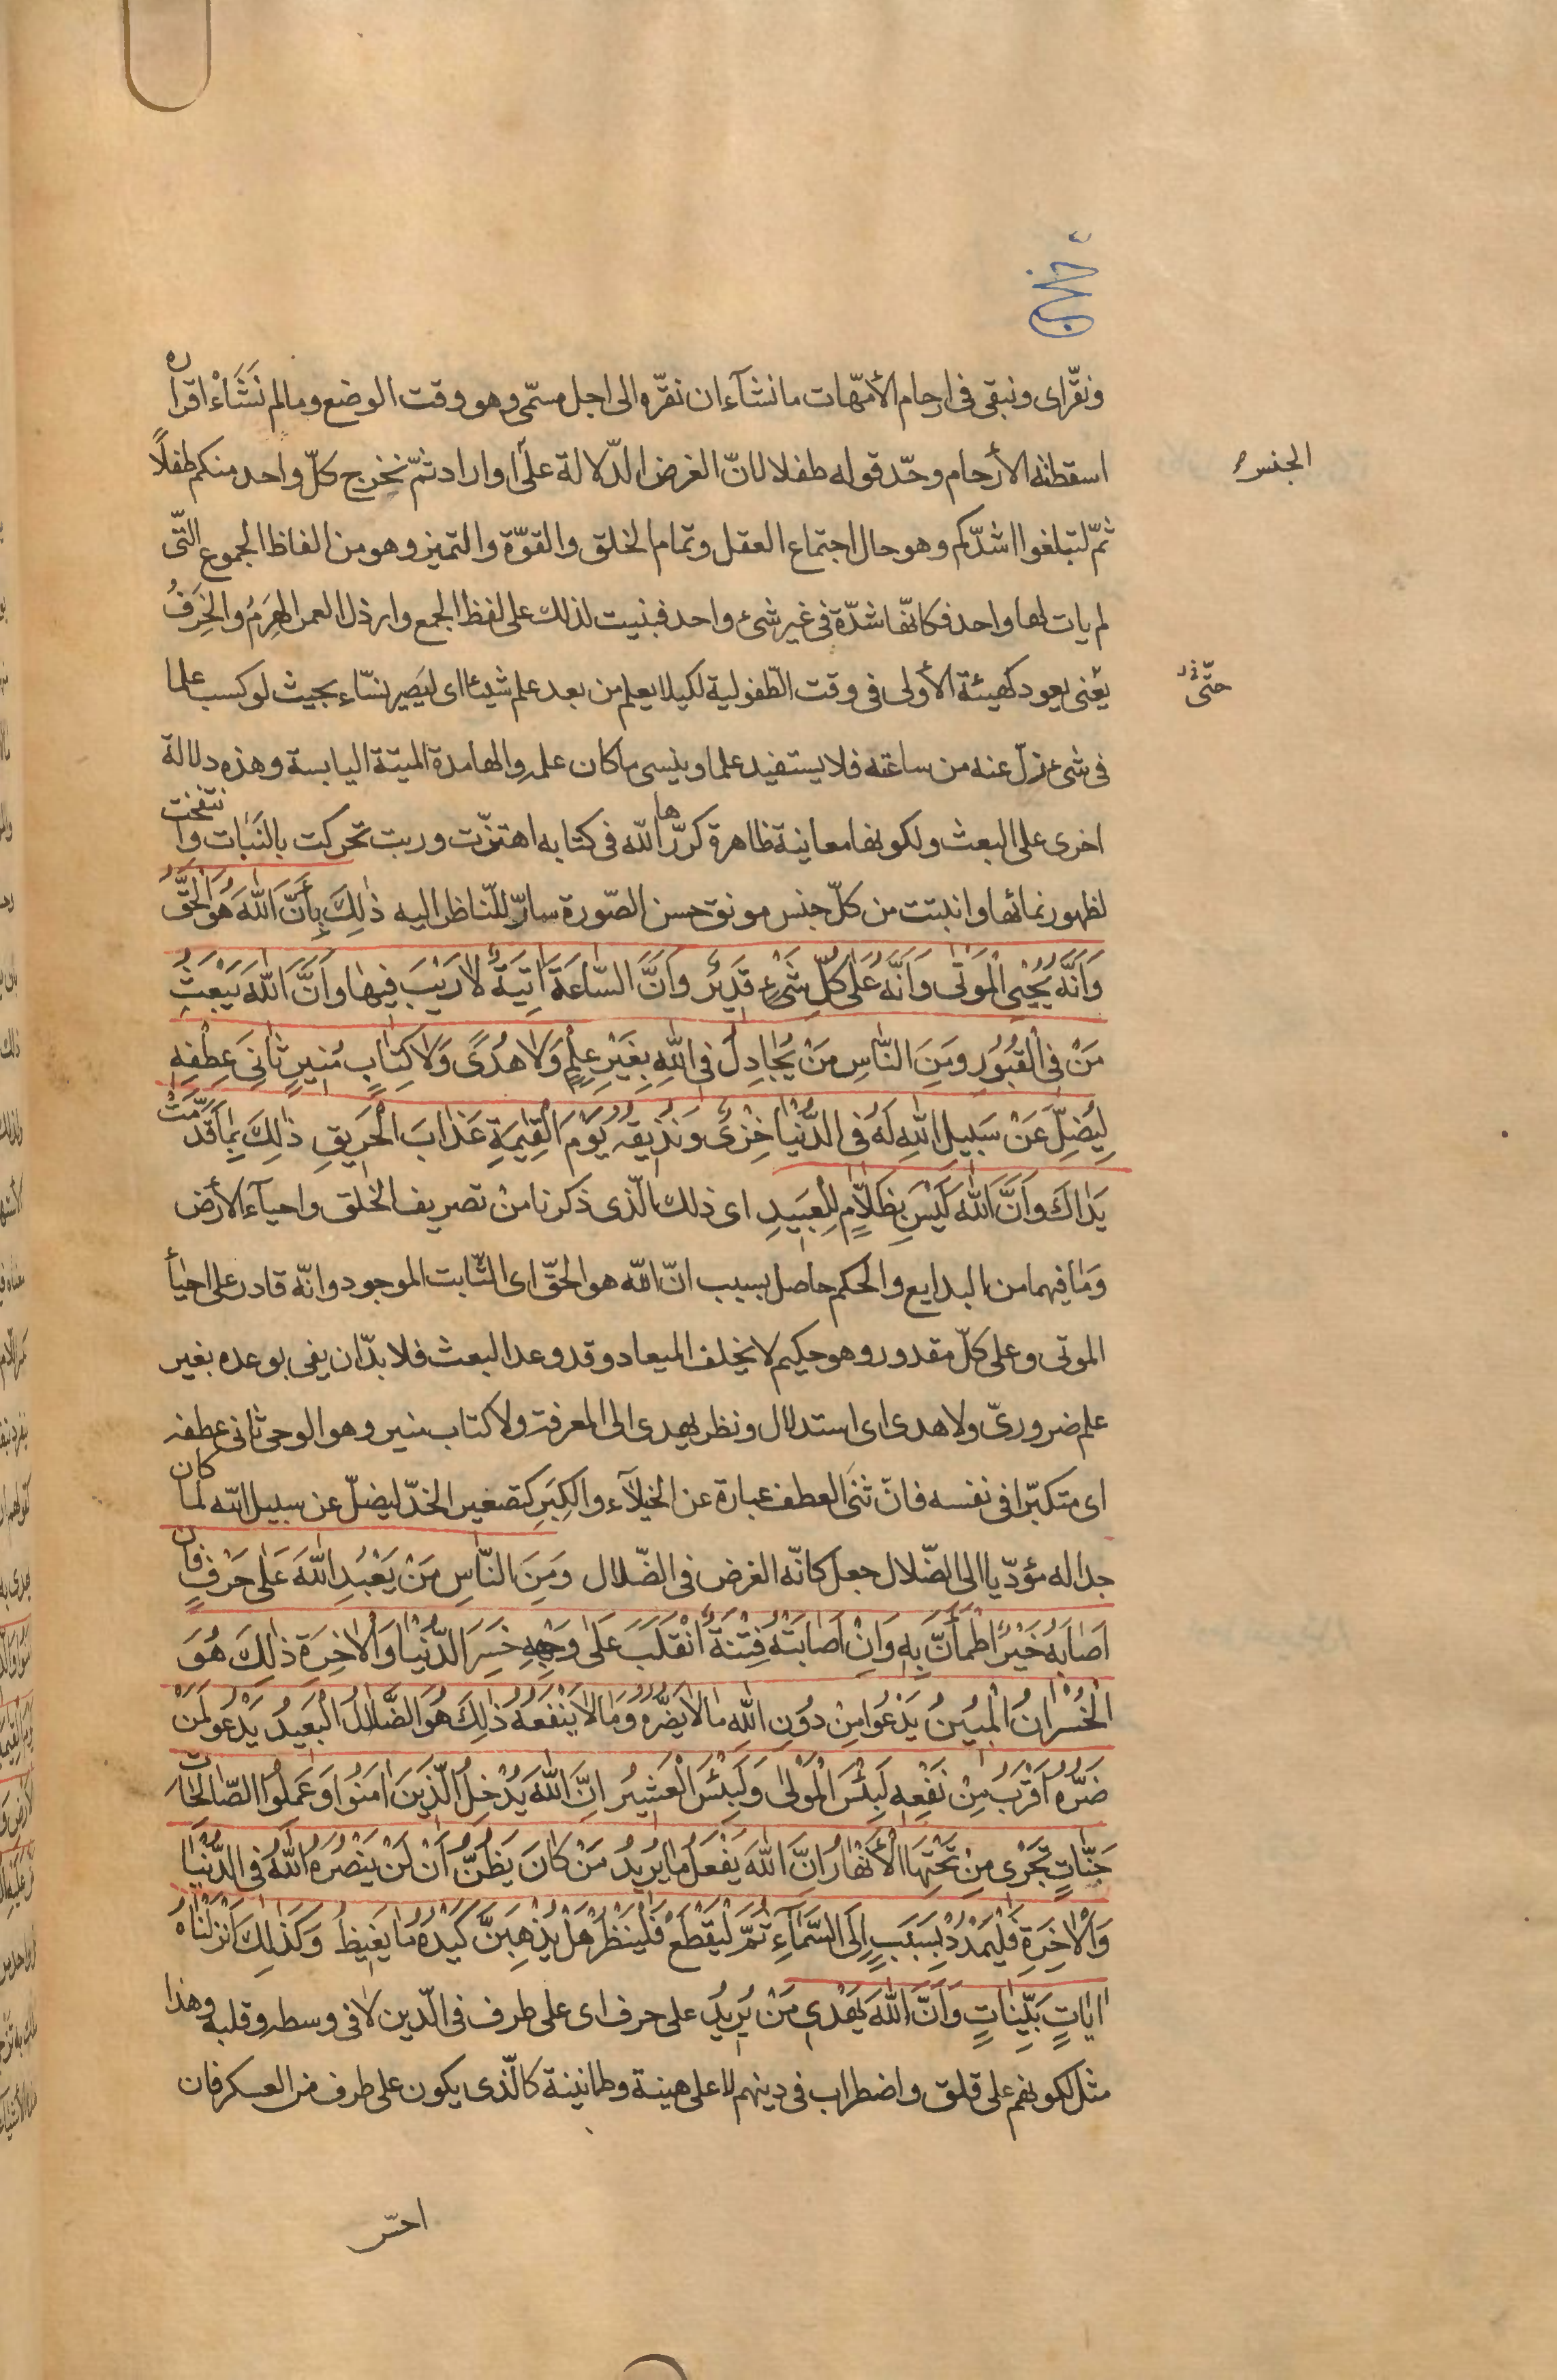 حج
ونقرّ اى ونبقى فى ارحام الأمّهات ما نشآء ان نقرّه الى اجل مسمّى وهو وقت الوضع وما لم نَشَاءْ اقراره
اسقطته الأرحام وحّد قوله طفلا لانّ الغرض الدّلالة على او اراد ثمّ نخرج كلّ واحد منكم طفلاً
الجنس
ثمّ لتبلغوا اشدّكم وهو حال اجتماع العقل وتمام الخلق والقوّة والتميز وهو من الفاظ الجموع التّى
لم يات لها واحد فكانّها شدّة فى غير شىء واحد فبنيت لذلك على لفظ الجمع وارذل العمر الهَرَمُ والخَرَفُ
يعْنى يعود كهيئة الأولى فى وقت الطّفولية لكيلا يعلم من بعد علم شيئا اى ليَصير نسّاء بحيث لو كسب علما
حتّى
فى شىء زلّ عنه من ساعته فلا يستفيد علما وينسى ما كان علمه والهامدة الميتة اليابسة وهذه دلالة
اخرى على البعث ولكونها معاينة ظاهرة كرّرها الله فى كتابه اهتزّت وربت تحركت بالنَبَات وانتفخت
لظهور نمائها وانبتت من كلّ جنس مونق حسن الصّورة سارّ للنّاظر اليه ذٰلِكَ بِأَنَّ اللّٰهَ هُوَ الْحَقُّ
وَاَنَّهُ يُحْيِى الْمَوْتٰى وَاَنَّهُ عَلٰى كُلِّ شَىْءٍ قَدِيرٌ وَاَنَّ السّٰاعَةَ اٰتِيَةٌ لاٰ رَيْبَ فِيهٰا وَاَنَّ اللّٰهَ يَبْعَثُ
مَنْ فِى الْقُبُورِ وَمِنَ النّٰاسِ مَنْ يُجٰادِلُ فِى اللّٰهِ بِغَيْرِ عِلْمٍ وَلاٰ هُدًى وَلاٰ كِتٰابٍ مُنِيرٍ ثٰانِىَ عِطْفِهِ
لِيُضِلَّ عَنْ سَبِيلِ اللّٰهِ لَهُ فِى الدُّنْيٰا خِزْىٌ وَنُذِيقُهُ يَوْمَ الْقِيٰمَةِ عَذٰابَ الْحَرِيقِ ذٰلِكَ بِمٰا قَدَّمَتْ
يَدٰاكَ وَاَنَّ اللّٰهَ لَيْسَ بِظَلاّٰمٍ لِلْعَبِيدِ اى ذلك الّذى ذكرنا منْ تصريف الخلق واحيآء الأرض
وَمٰا فيهما من البدايع والحكم حاصل بسبب انّ اللّه هو الحقّ اى الثّابت الموجود وانّه قادر على احيأ
الموتى وعلى كلّ مقدور وهو حكيم لا يخلف الميعاد وقد وعد البعث فلا بدّ ان يفى بوعده بغير
علم ضرورىّ ولا هدى اى استدلال ونظر يهدى الى المعرفة ولا كتاب منير وهو الوحى ثانى عطفه
اى متكبّرا فى نفسه فانّ ثنَى العطف عبارة عن الخيلآء والكِبَر كتصغير الخدّ ليضلّ عن سبيل اللّه لما كان
جداله مؤدّيا الى الضّلال جعل كانّه الغرض فى الضّلال وَمِنَ النّٰاسِ مَنْ يَعْبُدِ اللّٰهَ عَلٰى حَرْفٍ فَاِنْ
اَصٰابَهُ خَيْرٌ اطْمَأَنَّ بِهِ وَاِنْ اَصٰابَتْهُ فِتْنَةٌ انْقَلَبَ عَلٰى وَجْهِهِ خَسِرَ الدُّنْيٰا وَالْاٰخِرَةَ ذٰلِكَ هُوَ
الْخُسْرٰانُ الْمُبِينُ يَدْعُوا مِنْ دُونِ اللّٰهِ مٰا لاٰ يَضُرُّهُ وَمٰا لاٰ يَنْفَعُهُ ذٰلِكَ هُوَ الضَّلاٰلُ الْبَعِيدُ يَدْعُو لَمَنْ
ضَرُّهُ اَقْرَبُ مِنْ نَفْعِهِ لَبِئْسَ الْمَوْلٰى وَلَبِئْسَ الْعَشِيرُ اِنَّ اللّٰهَ يُدْخِلُ الَّذِينَ اٰمَنُوا وَعَمِلُوا الصّٰالِحٰاتِ
جَنّٰاتٍ تَجْرِى مِنْ تَحْتِهَا الْأَنْهٰارُ اِنَّ اللّٰهَ يَفْعَلُ مٰا يُرِيدُ مَنْ كٰانَ يَظُنُّ اَنْ لَنْ يَنْصُرَهُ اللّٰهُ فِى الدُّنْيٰا
وَالْاٰخِرَةِ فَلْيَمْدُدْ بِسَبَبٍ اِلَى السَّمٰآءِ ثُمَّ لْيَقْطَعْ فَلْيَنْظُرْ هَلْ يُذْهِبَنَّ كَيْدُهُ مٰا يَغِيظُ وَكَذٰلِكَ اَنْزَلْنٰاهُ
اٰيٰاتٍ بَيِّنٰاتٍ وَاَنَّ اللّٰهَ يَهْدِى مَنْ يُرِيدُ على حرف اى على طرف فى الّدين لا فى وسطه وقلبه وهذا
مثل لكونهم على قلق واضطراب فى دينهم لا على هينة وطمانينة كالّذى يكون على طرف من العسكر فان
احسّ